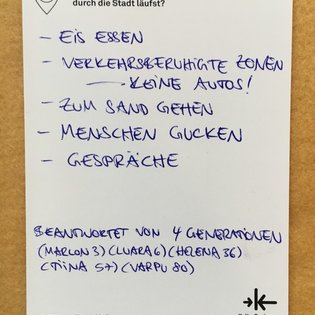 durch die Stadt läufst?
- EIS ESSEN
- VERKEHRSBERUHIGTE ZONEN
KEINE AUTOS!
- ZUM SAND GEHEN
- MENSCHEN GUCKEN
- GESPRÄCHE
BEANTWORTET VON 4 GENERATIONEN
(MARLON 3) (LUARA 6) (HELENA 36)
(TIINA 57) (VARPU 80)